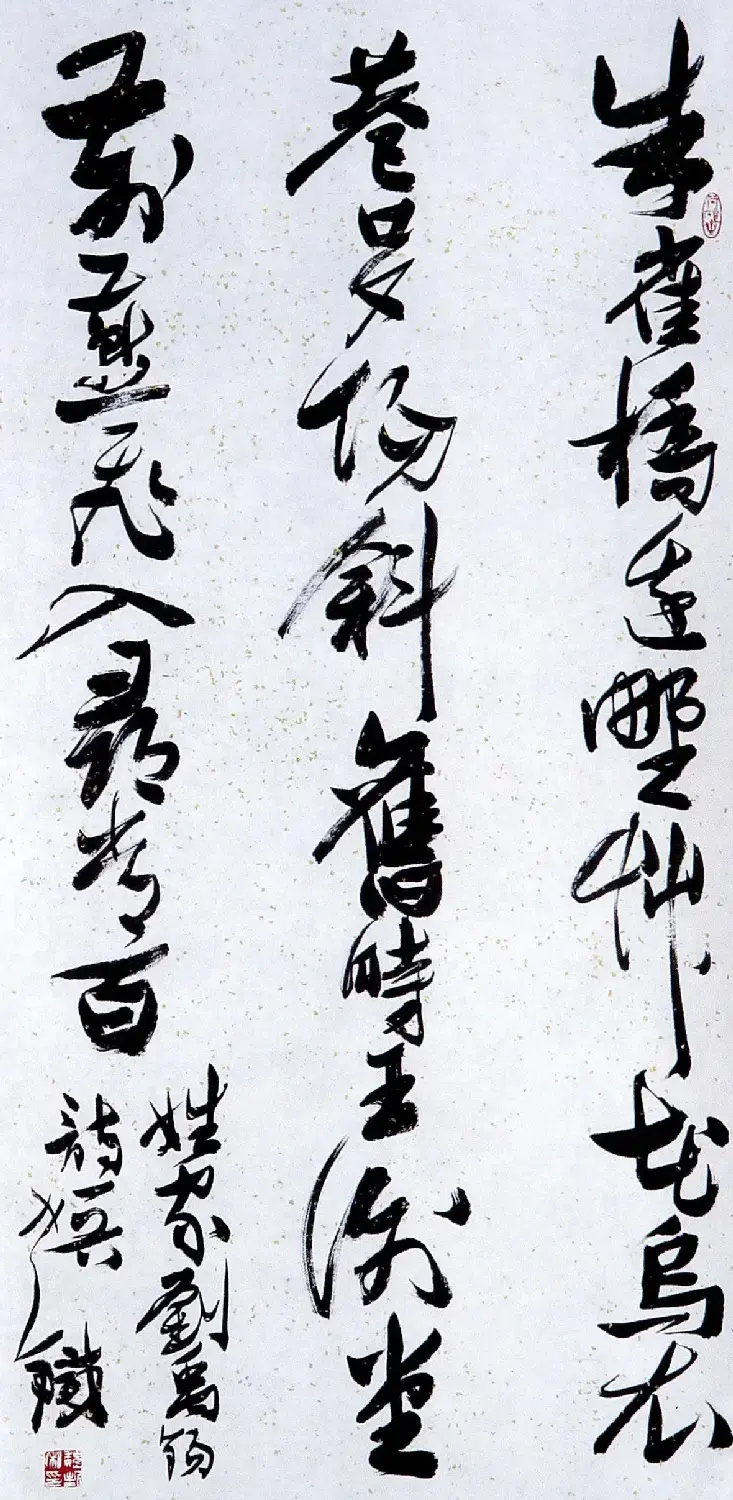 朱雀橋邊野艸花烏衣
巷口夕陽斜舊時王謝堂
前燕飛入尋常百
姓家劉禹錫
詩